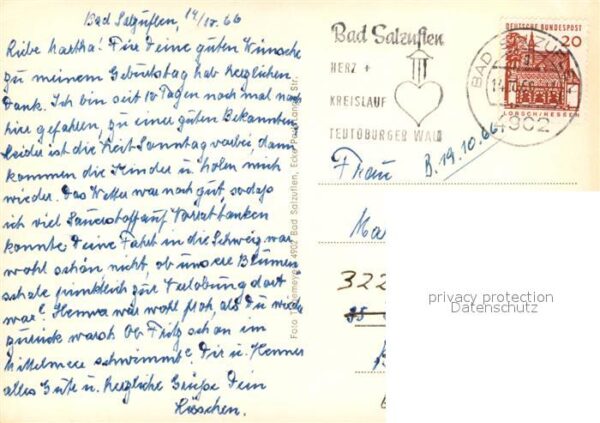 Bad Salzuflen, 14/10. 66
Liebe Martha! Für Deine guten Wünsche
zu meinem Geburtstag hab herzlichen
Dank. Ich bin seit 12 Tagen noch mal nach
hire gefahren, zu einer guten Bekannten.
Leider ist die Zeit Sonntag vorbei, dann
kommen die Kinder u. holen mich
wieder. Das Wetter war noch gut, sodaß
ich viel Sauerstoff auf Vorrat tanken
konnte. Deine Fahrt in die Schweiz war
wohl schön nicht, ob unsere Blumen
schale pünktlich zur Verlobung dort
war? Henna war wohl froh, als Du wieder
zurück warst. Ob Fritz schon im
Mittelmeer schwimmt? Dir u. Henner
alles Gute u. herzliche Grüße Dein
Häschen.
4902 Bad Salzuflen, Ecke
Bad Salzuflen
HERZ +
KREISLAUF
TEUTOBURGER WALD
DEUTSCHE BUNDESPOST
20
LORSCH/HESSEN
BAD SALZUFLEN
4902
B. 19.10.66
Frau
Ma
322
35
privacy protection
Datenschutz